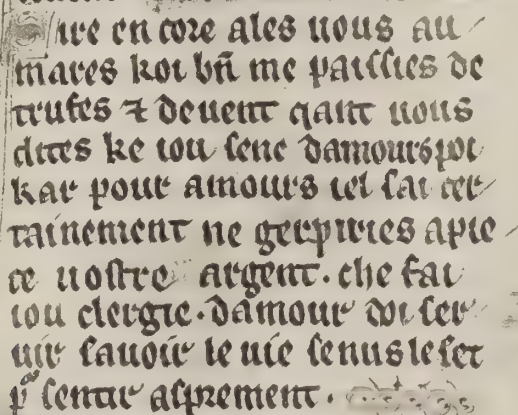 ire en core ales uous au
mares koi bn̄ me paissies de
trufes ⁊ de uent qant uous
dites ke iou senc damours poi
kar pour amours iel sai cer
tainement ne gerpiries apie
ce uostre argent. che sai
iou clergie. damour doi ser
uir sauoir le uie se nus le set
p sentir asprement.